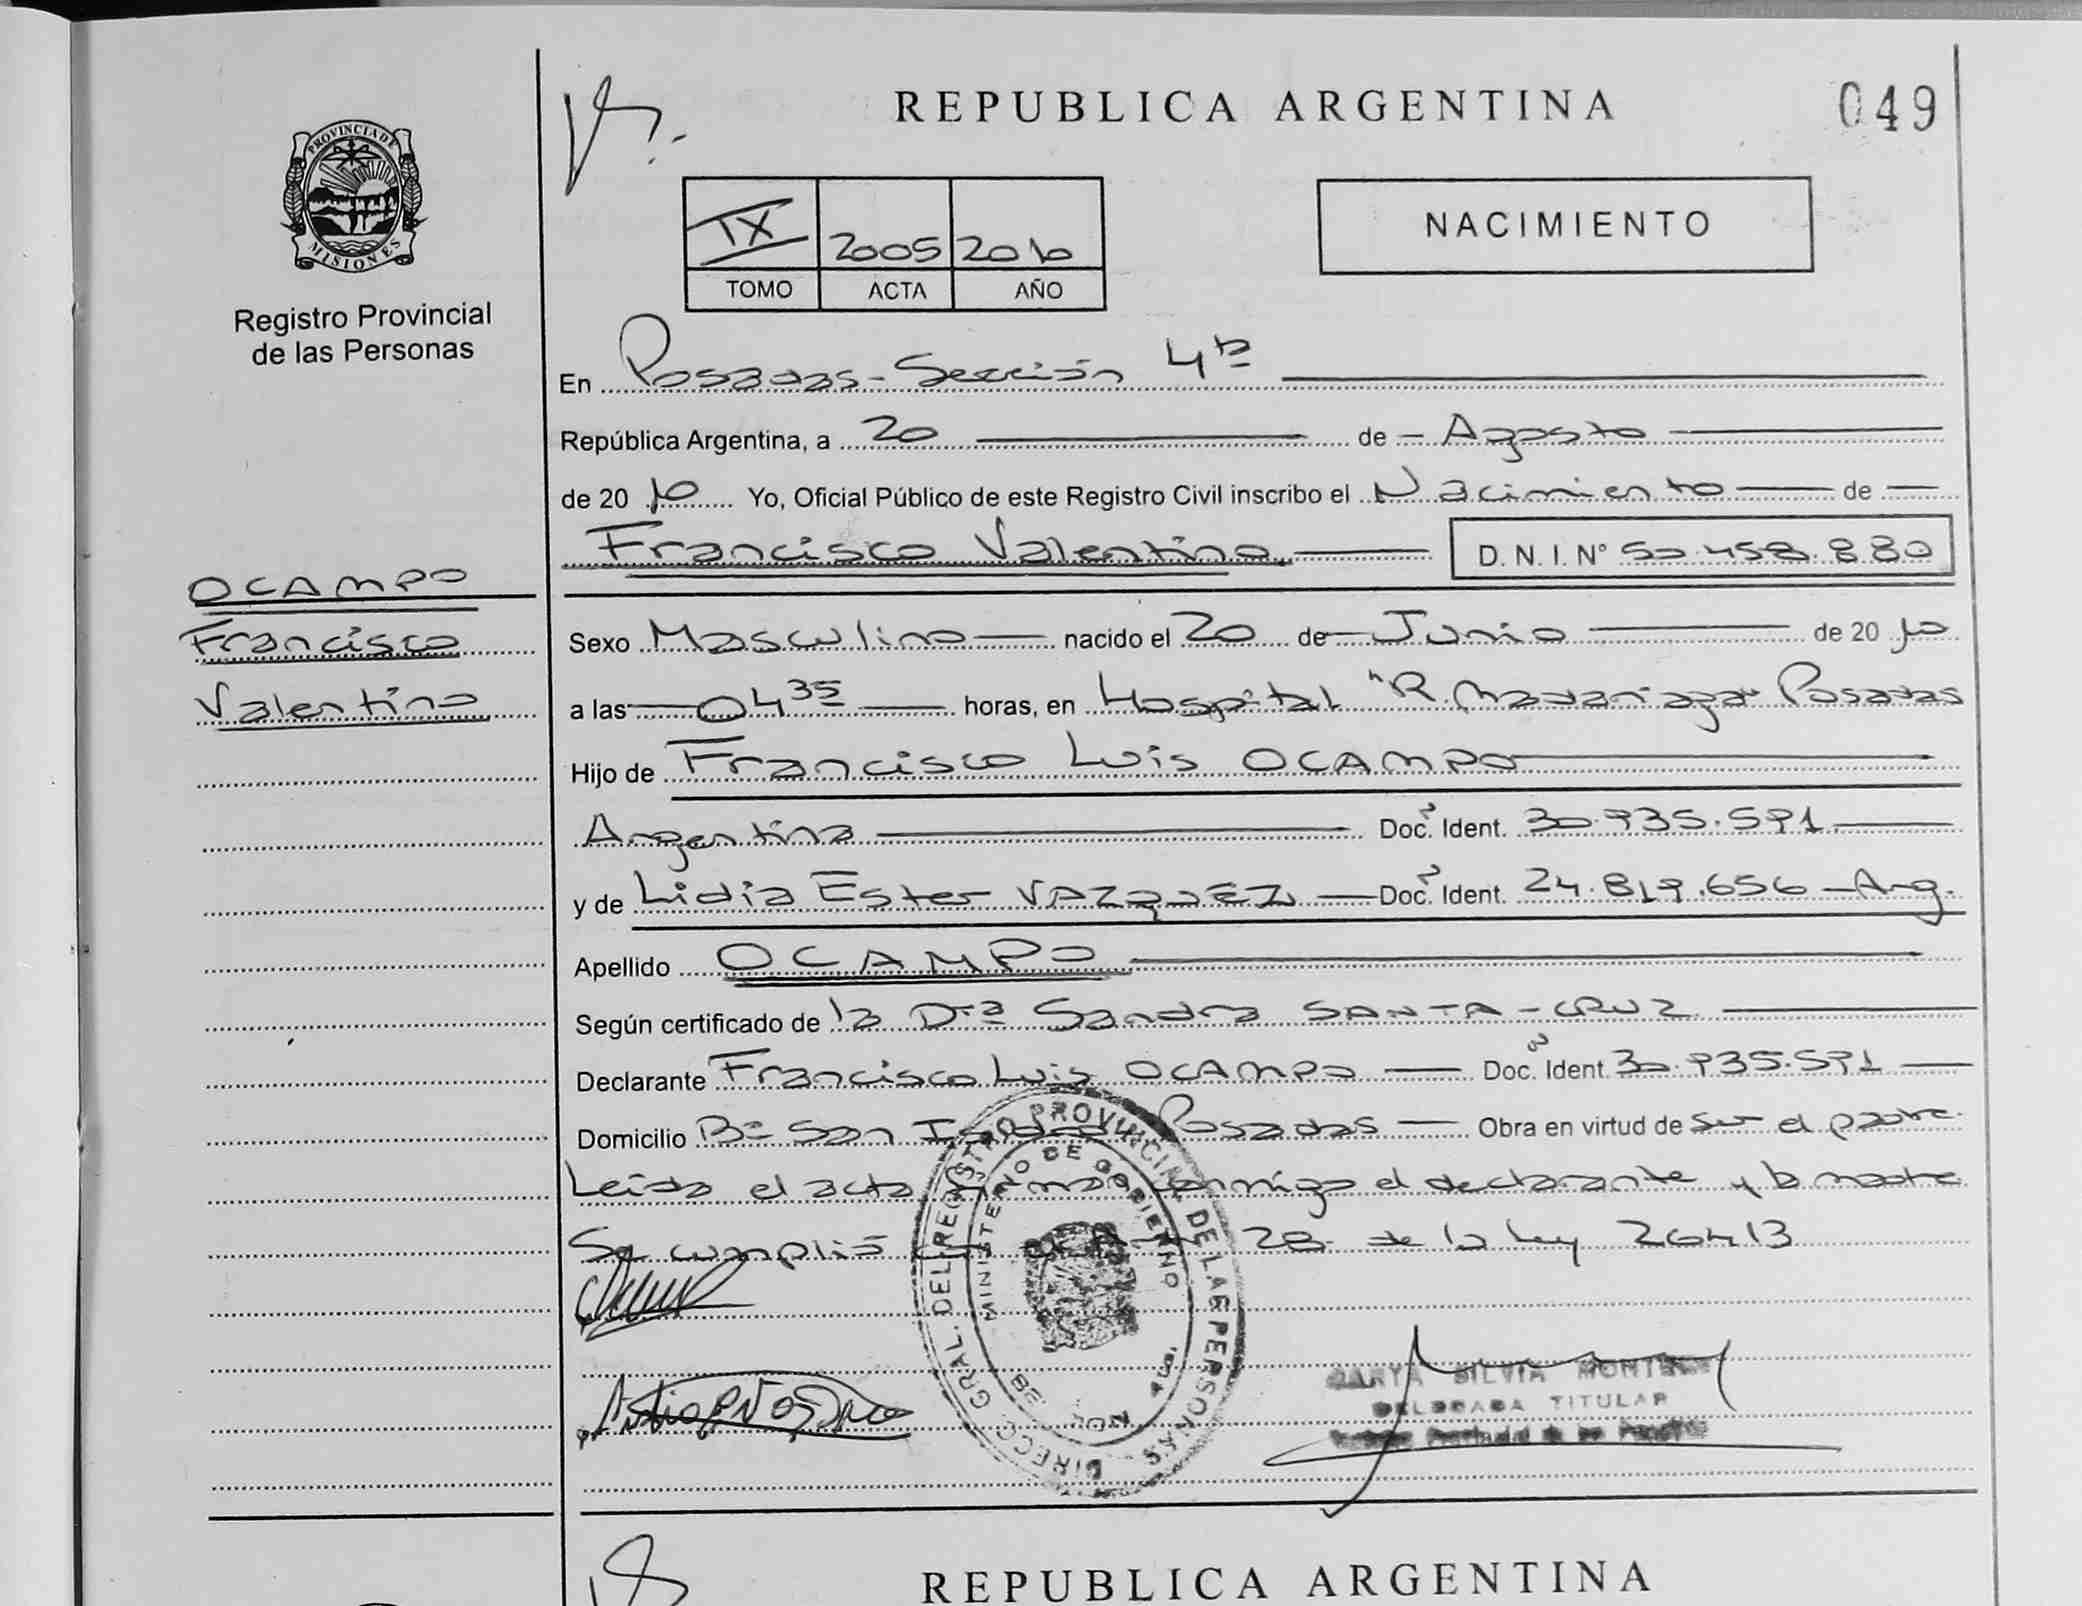 REPUBLICA ARGENTINA
049
PROVINCIA DE
MISIONES
Registro Provincial
de las Personas
IX 2005 2010
TOMO ACTA AÑO
NACIMIENTO
En Posadas - Sección 4ta
República Argentina, a 20 de Agosto
de 2010 Yo, Oficial Público de este Registro Civil inscribo el Nacimiento de
Francisco Valentino D. N. I. N° 50.458.880
OCAMPO
Francisco
Valentino
Sexo Masculino nacido el 20 de Junio de 2010
a las 04 35 horas, en Hospital "R. Madariaga" Posadas
Hijo de Francisco Luis OCAMPO
Argentina Doc. Ident. 30.935.591
y de Lidia Ester VAZquEZ Doc. Ident. 24.819.656 - Arg.
Apellido OCAMPO
Según certificado de la Dra Sandra SANTA-CRUZ
Declarante Francisco Luis OCAMPO Doc. Ident. 30.935.591
Domicilio Bº San Posadas Obra en virtud de ser el padre.
Leida el acta conmigo el declarante y la madre
Se cumplió 28 de la ley 26413
DIRECC. GRAL. DEL REGISTRO PROVINCIAL DE LAS PERSONAS
MINISTERIO DE GOBIERNO
SILVIA
DELEGADA TITULAR
REPUBLICA ARGENTINA